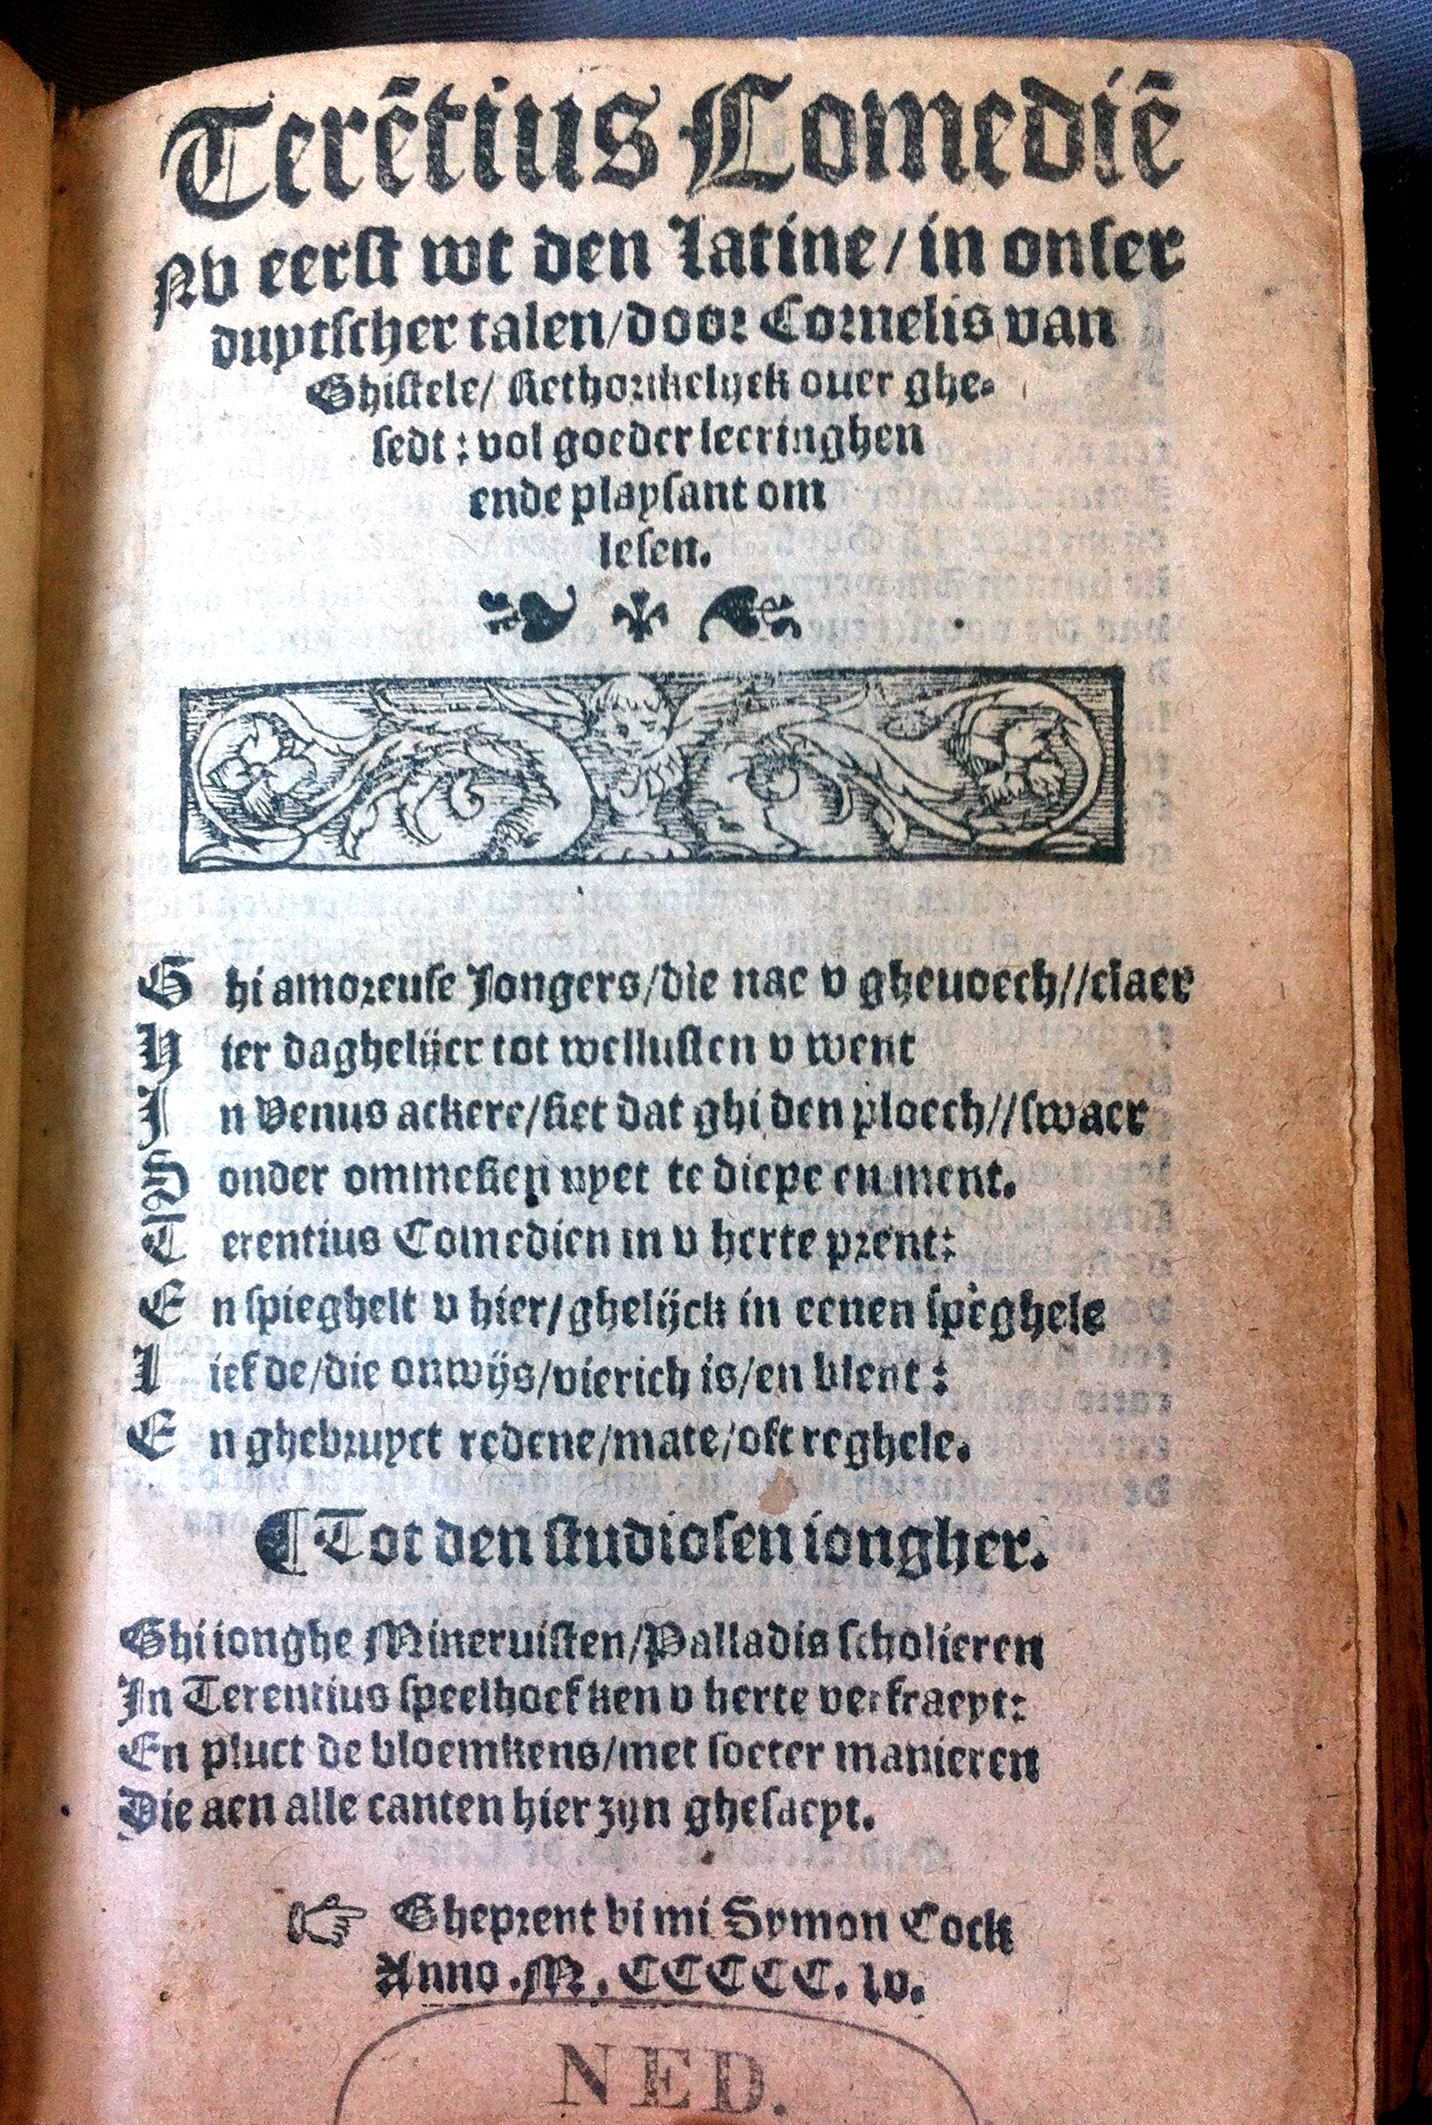 Terētius Comediē
Nv eerst wt den latine/ in onser
duytscher talen/door Cornelis van
Ghistele/ Rethorikelijck ouer ghe-
sedt: vol goeder leeringhen
ende playsant om
lesen.
G hi amoreuse Jongers/die nae v gheuoech//claer
H ier daghelijcx tot wellusten v went
I n Venus ackere/siet dat ghi den ploech//swaer
S onder ommesien nyet te diepe en ment.
T erentius Comedien in v herte prent:
E n spieghelt v hier/ghelijck in eenen speghele
L iefde/die onwijs/vierich is/en blent:
E n ghebruyct redene/mate/oft reghele.
¶ Tot den studiosen iongher.
Ghi ionghe Mineruisten/Palladis scholieren
In Terentius speelhoefken v herte verfraeyt:
En pluct de bloemkens/met soeter manieren
Die aen alle canten hier zijn ghesaeyt.
☞ Gheprent bi mi Symon Cock
Anno .M. CCCCC. lv.
NED.